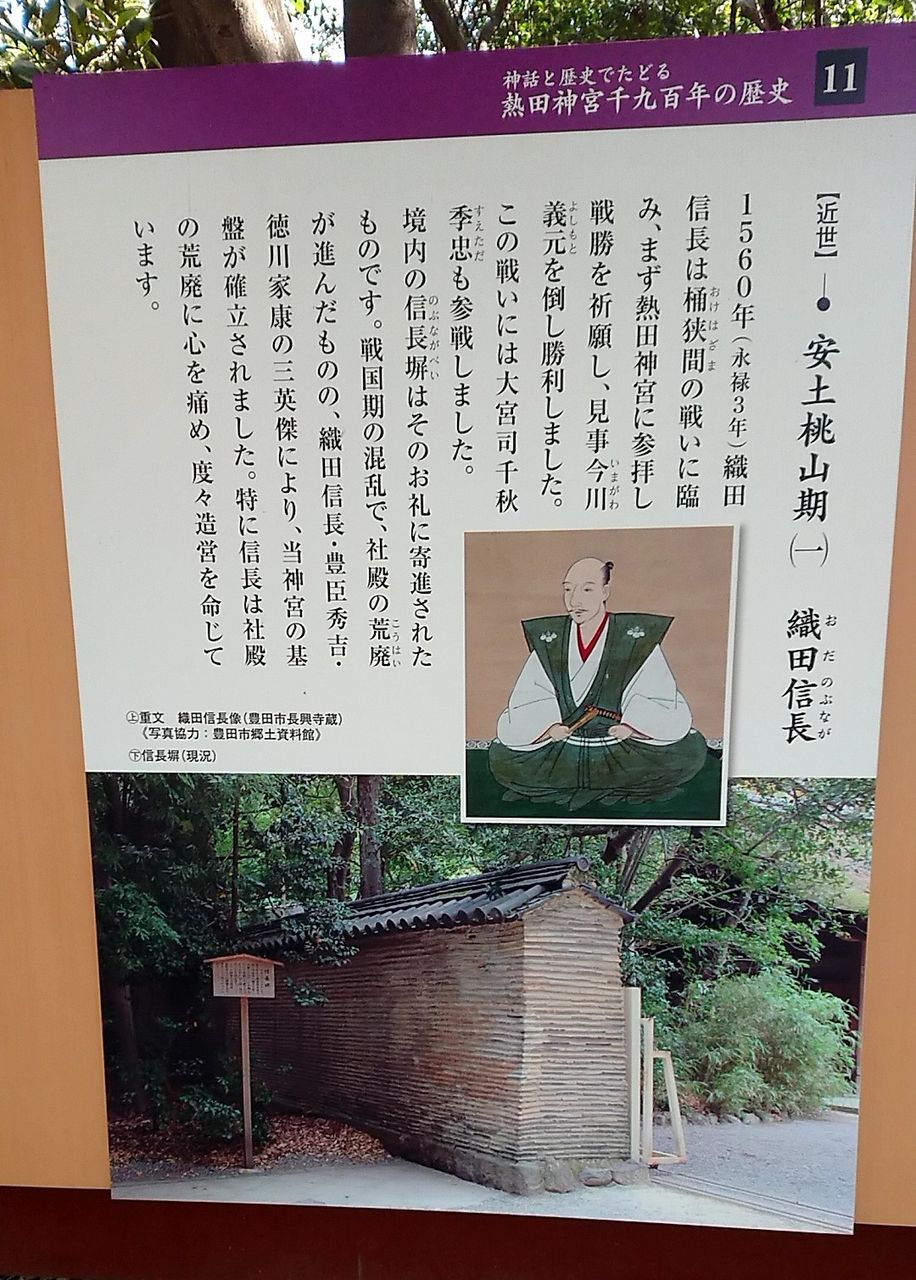 神話と歴史でたどる
熱田神宮千九百年の歴史
11
【近世】
安土桃山期（一）　織田信長
おだのぶなが
1560年（永禄3年）織田
信長は桶狭間の戦いに臨
おけはざま
み、まず熱田神宮に参拝し
戦勝を祈願し、見事今川
いまがわ
義元を倒し勝利しました。
よしもと
この戦いには大宮司千秋
季忠も参戦しました。
すえただ
境内の信長塀はそのお礼に寄進された
のぶながべい
ものです。戦国期の混乱で、社殿の荒廃
こうはい
が進んだものの、織田信長・豊臣秀吉・
徳川家康の三英傑により、当神宮の基
盤が確立されました。特に信長は社殿
の荒廃に心を痛め、度々造営を命じて
います。
㊤重文　織田信長像（豊田市長興寺蔵）
《写真協力：豊田市郷土資料館》
㊦信長塀（現況）